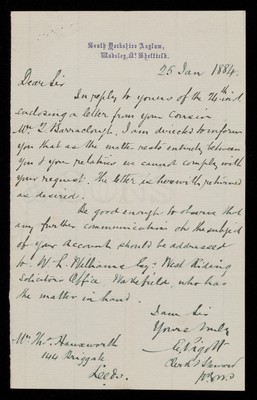 South Yorkshire Asylum,
Wadsley, Nr. Sheffield.
25 Jan 1884.
Dear Sir
In reply to yours of the 24th inst.
enclosing a letter from your cousin
Mr. T. Barraclough, I am directed to inform
you that as the matter rests entirely between
you & your relatives we cannot comply with
your request. The letter is herewith returned
as desired.
Be good enough to observe that
any further communication on the subject
of your Account should be addressed
to W. L. Williams Esq - West Riding
Solicitors Office Wakefield, who has
the matter in hand.
I am Sir
Yours truly
Clerk & Steward
Mr Thos. Hainsworth
144 Briggate
Leeds.